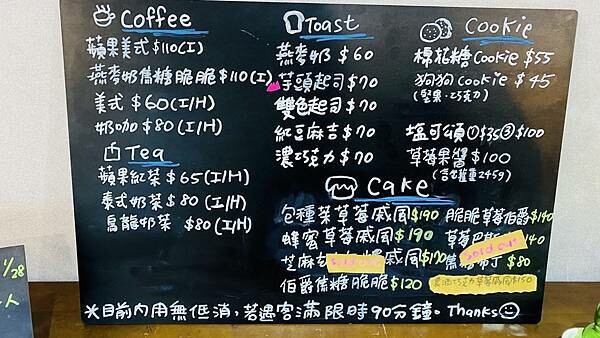 Coffee
蘋果美式 $110(I)
燕麥奶焦糖脆脆 $110(I)
美式 $60(I/H)
奶咖 $80(I/H)
Tea
蘋果紅茶 $65(I/H)
泰式奶茶 $80(I/H)
烏龍奶茶 $80(I/H)
Toast
燕麥奶 $60
芋頭起司 $70
雙色起司 $70
紅豆麻吉 $70
濃巧克力 $70
Cookie
棉花糖Cookie $55
狗狗cookie $45
(堅果.巧克力)
塩可頌 ①$35 ③$100
草莓果醬 $100
(含罐重245g)
Cake
包種茶草莓戚風$190
蜂蜜草莓戚風$190
芝麻 戚風$170
伯爵焦糖脆脆 $120
脆脆草莓伯爵$140
草莓巴斯 140
焦糖布丁 $80
巧克力草莓戚風$150
Sold out
※目前內用無低消,若遇客滿限時90分鐘。Thanks
1/28
人